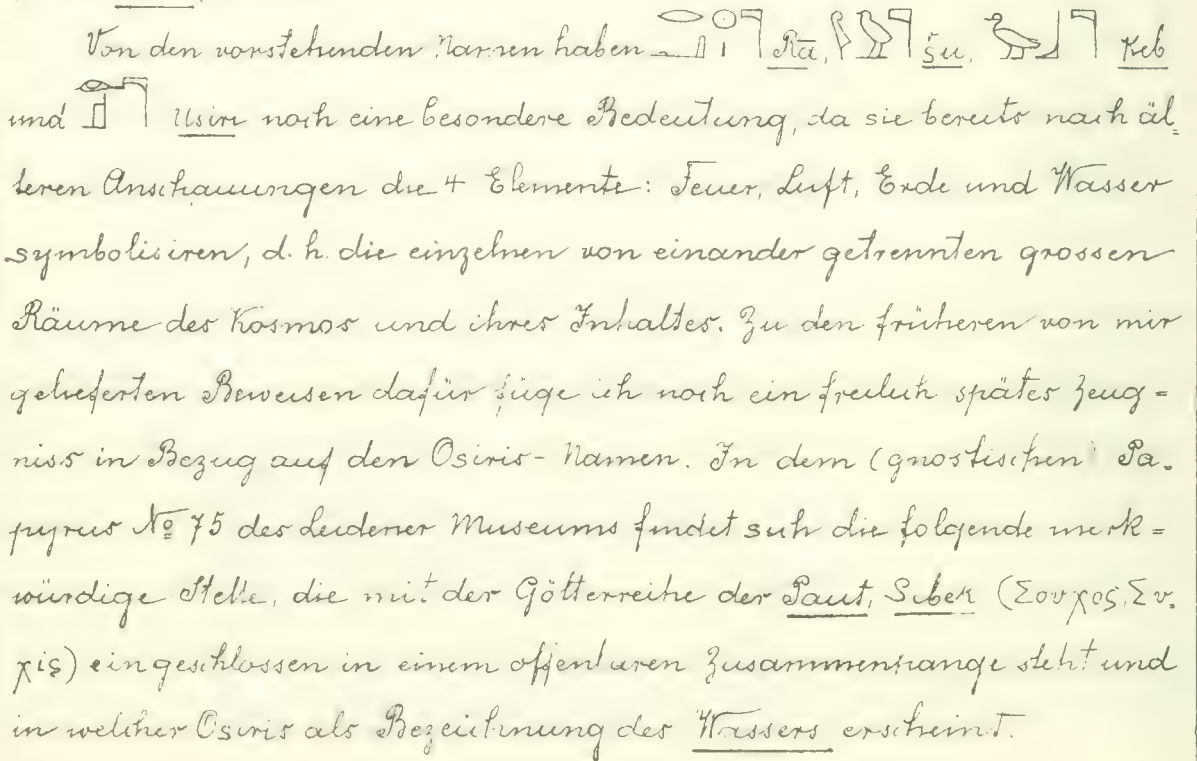 Von den vorstehenden Namen haben Rā, šu, Keb
und Usiri noch eine besondere Bedeutung, da sie bereits nach äl-
teren Anschauungen die 4 Elemente: Feuer, Luft, Erde und Wasser
symbolisiren, d. h. die einzelnen von einander getrennten grossen
Räume des Kosmos und ihres Inhaltes. Zu den früheren von mir
gelieferten Beweisen dafür füge ich noch ein freilich spätes Zeug=
niss in Bezug auf den Osiris-Namen. In dem (gnostischen Pa-
pyrus No 75 des Leidener Museums findet sich die folgende merk=
würdige Stelle, die mit der Götterreihe der Paut, Sebek (Σουχος, Συ-
χις) eingeschlossen in einem offenbaren Zusammenhange steht und
in welcher Osiris als Bezeichnung des Wassers erscheint.